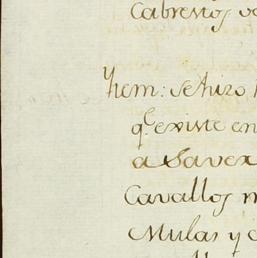 Cabrestos
Yhem: se hizo
qe. existe en
a Saver
Cavallos
Mulas y